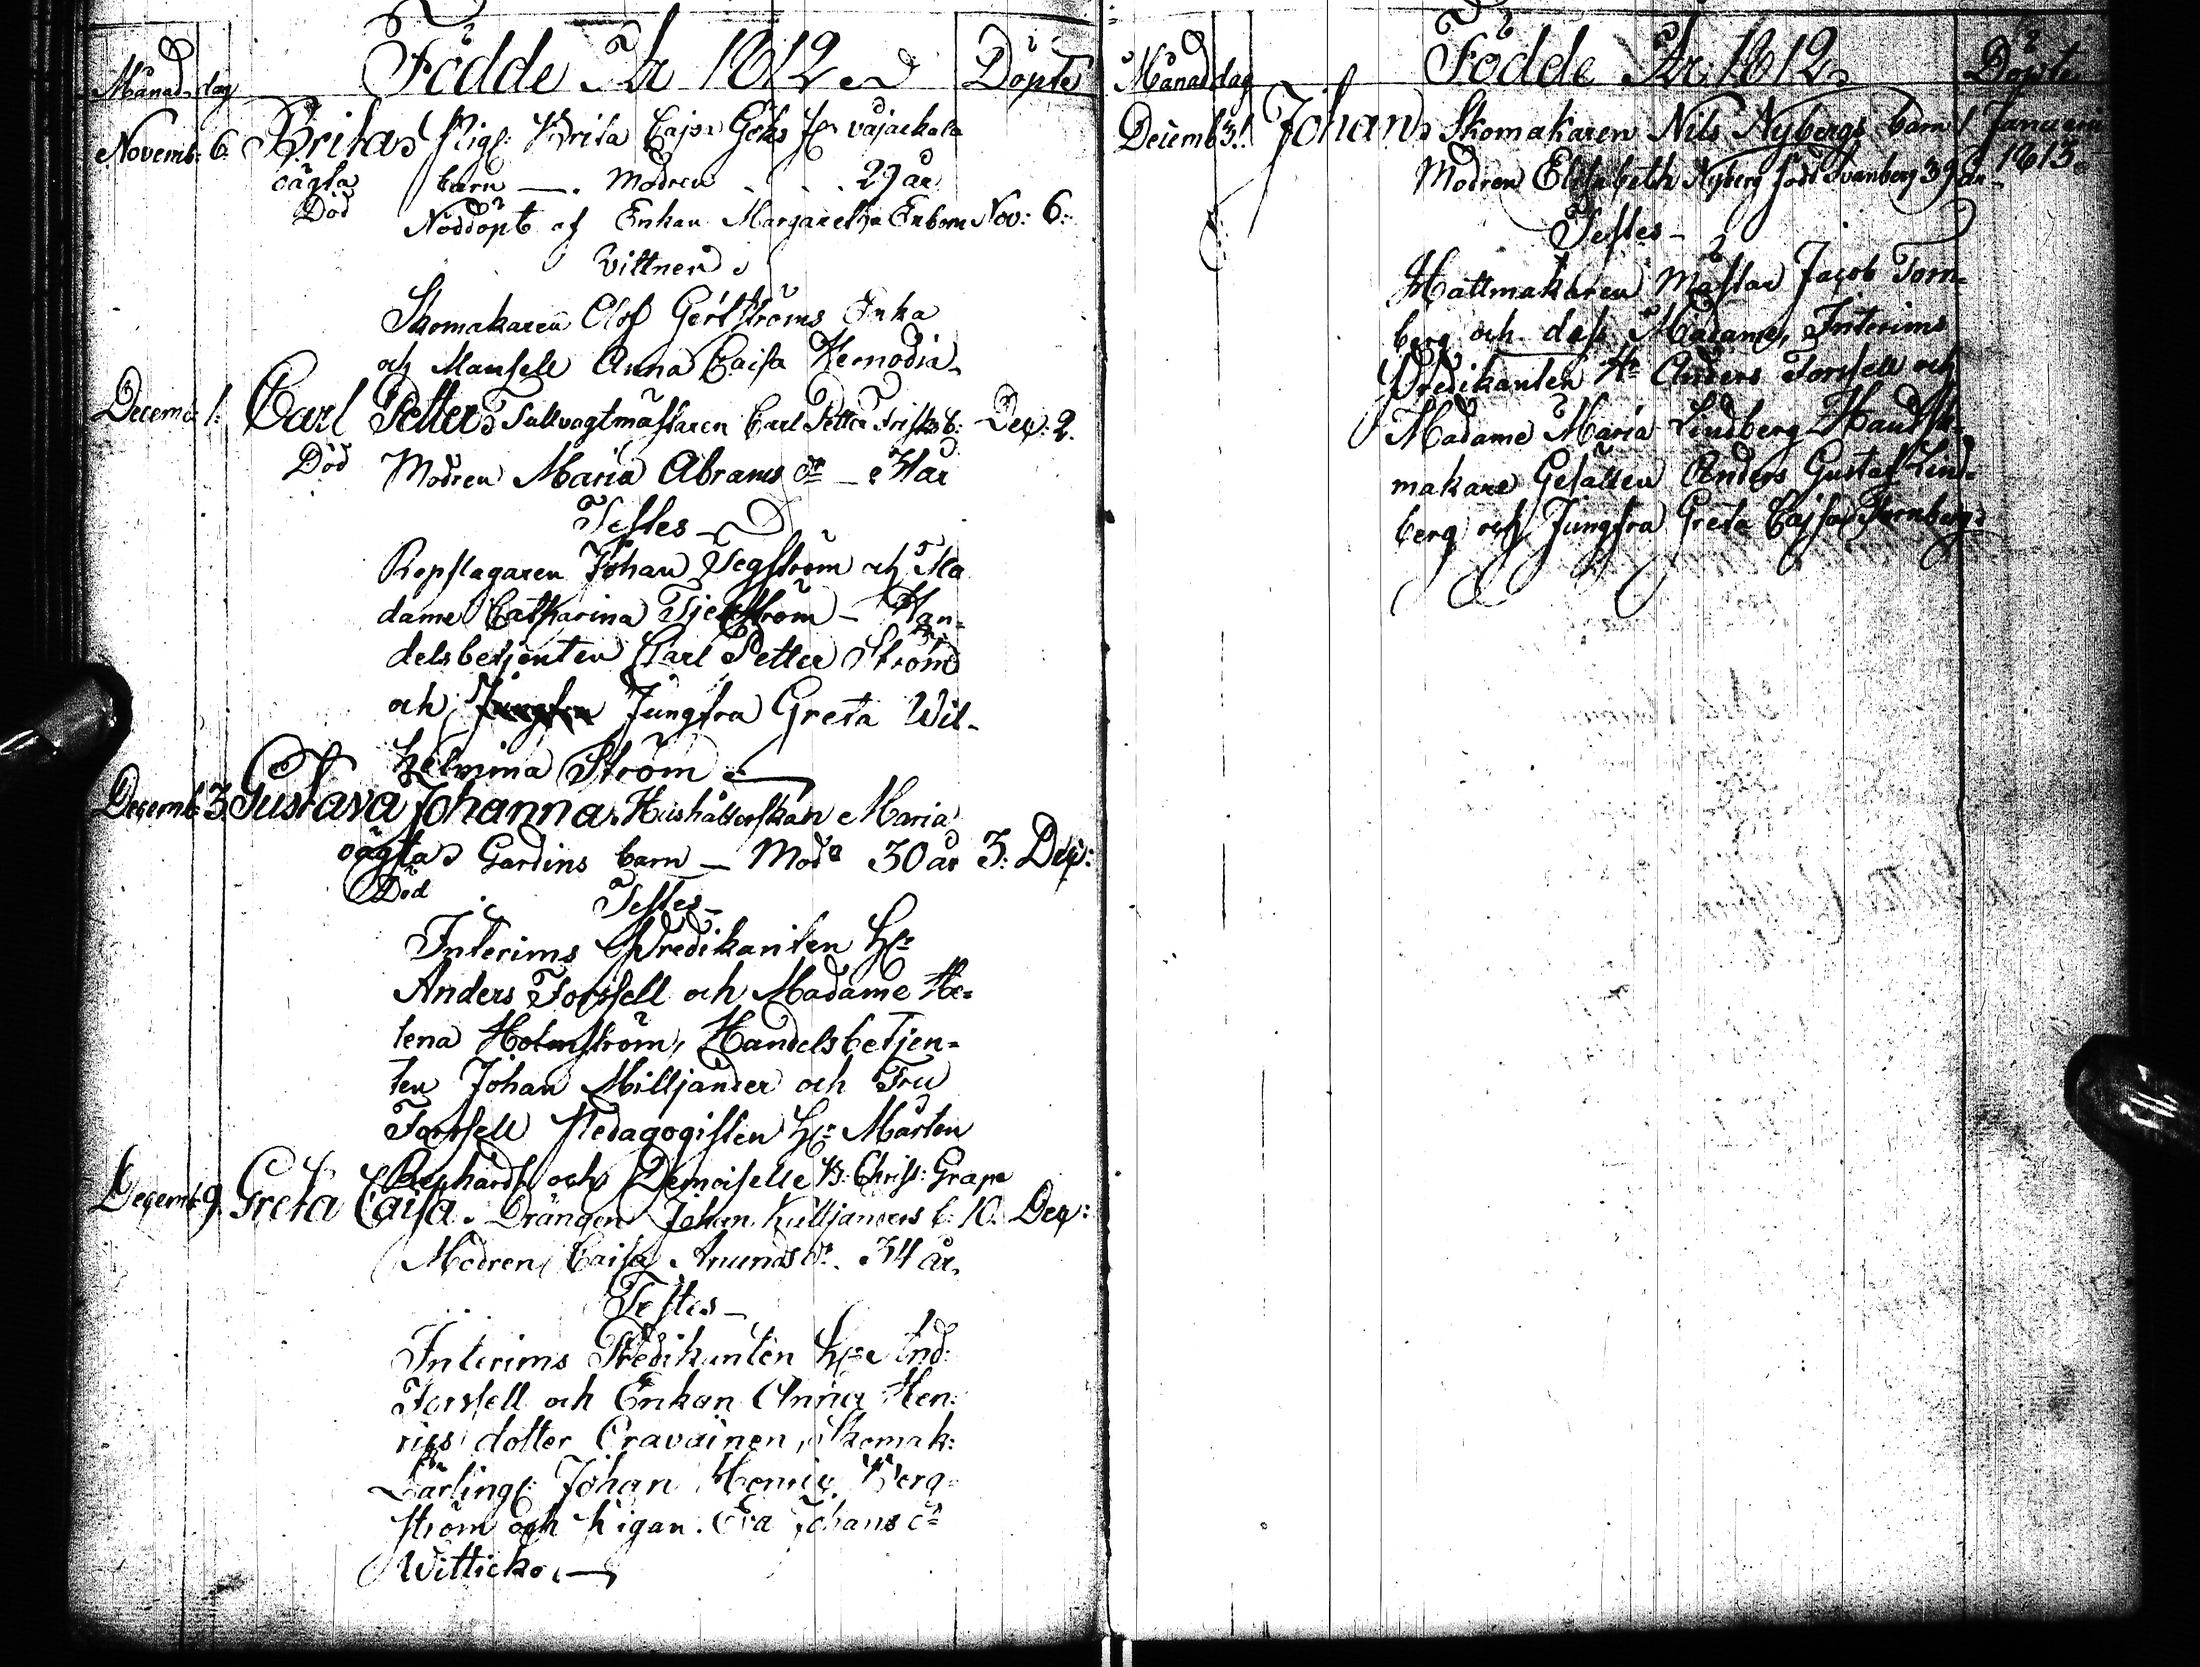 Månad dag Födde År 1812 Döpte
Novemb: 6. Brita Pig: Brita Cajsa
oägta barn — Modren 29 år
Död
Nöddöpt af Enkan Margaretha Enbom Nov: 6:
Vittnen
Skomakaren Olof Enka
och Mamsell Anna Caisa
Decemb 1. Carl Petter Tullvagtmästaren Carl Petter b: Dec: 2.
Död Modren Maria Abrams dr år
Testes
Repslagaren Johan Segström och Ma
dame Catharina — Han-
delsbetjenten Carl Petter Ström
och Jungfru Jungfru Greta Wil-
helmina Ström
Decemb 3. Gustava Johanna. Hushållerskan Maria
oägta Gardins barn — Mod: 30 år 3: Dec:
Död
Testes
Interims Predikanten Hr
Anders Forssell och Madame He-
lena Holmström, Handelsbetjen-
ten Johan Milljander och Fru
Forssell Pedagogisten Hr Mårten
och Demoiselle B: Christ: Grape
Decemb 9. Greta Caisa. Drängen Johan Kulljanders b: 10. Dec:
Modren Caisa Anunds dr. 34 år.
Testes
Interims Predikanten Hr And:
Forssell och Enkan Anna Hen-
rics dotter Cravainen, Skomak:
Lärling: Johan Henric Berg-
ström och Pigan Eva Johans dr
Witticko
Månad dag Födde År 1812 Döpte
Decemb 31. Johan Skomakaren Nils Nybergs barn 1 Januarii
Modren Elisabeth Nyberg född Svanberg 39 år 1813.
Testes
Hattmakaren Mästar Jacob Torn-
berg och dess Madame, Interims
Predikanten Hr Anders Forssell och
Madame Maria Lindberg Handsk-
makare Gesällen Anders Gustaf Lind-
berg och Jungfru Greta Cajsa Tornberg